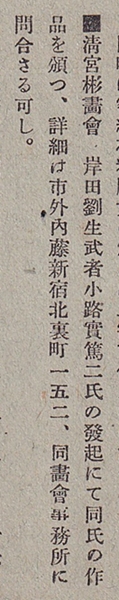 ■清宮彬畫會 岸田劉生武者小路實篤二氏の發起にて同氏の作
品を頒つ、詳細は市外內藤新宿北裏町一五二、同畫會事務所に
問合さる可し。